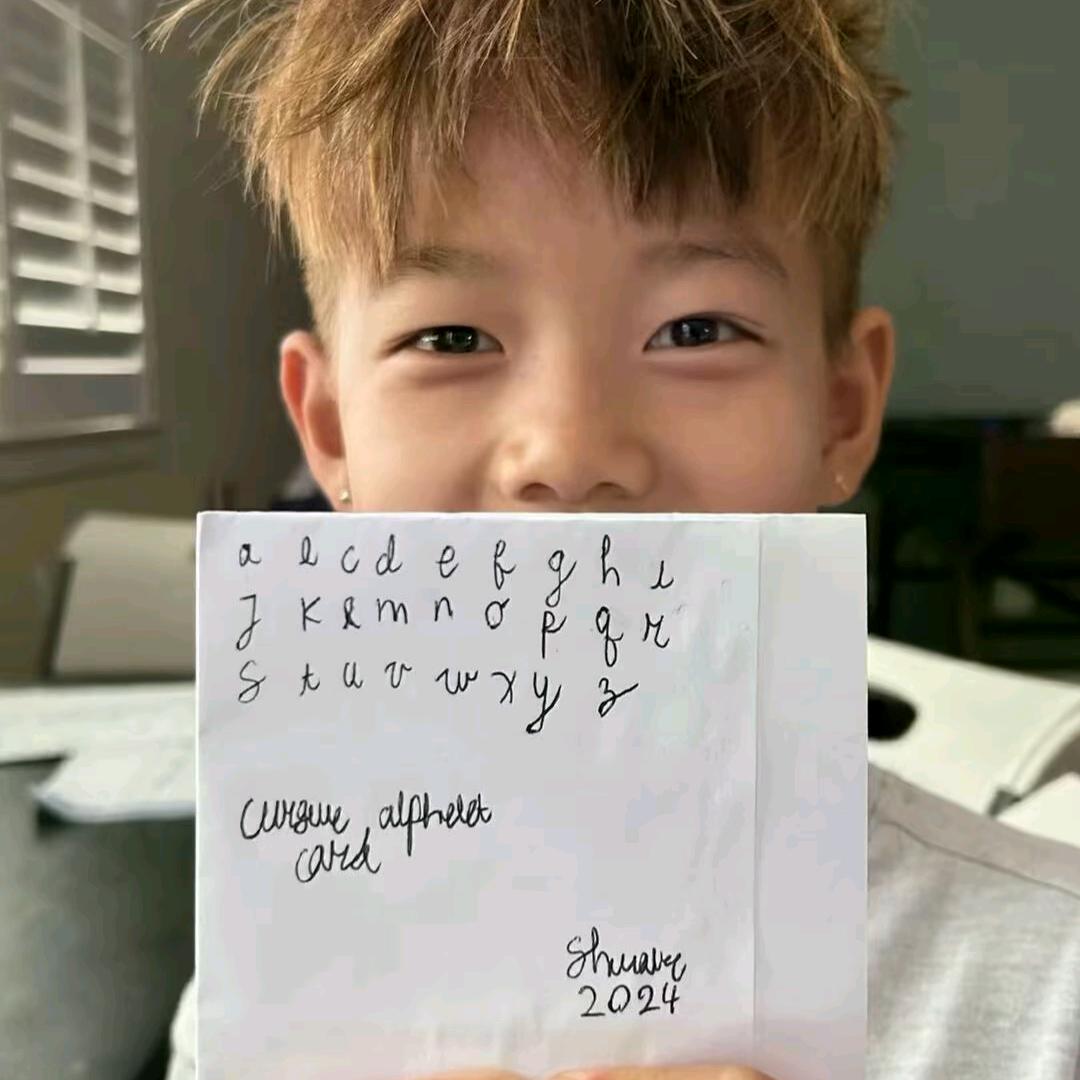 a b c d e f g h i
J K l m n o p q r
s t u v w x y z
cursive alphabet
card
2024